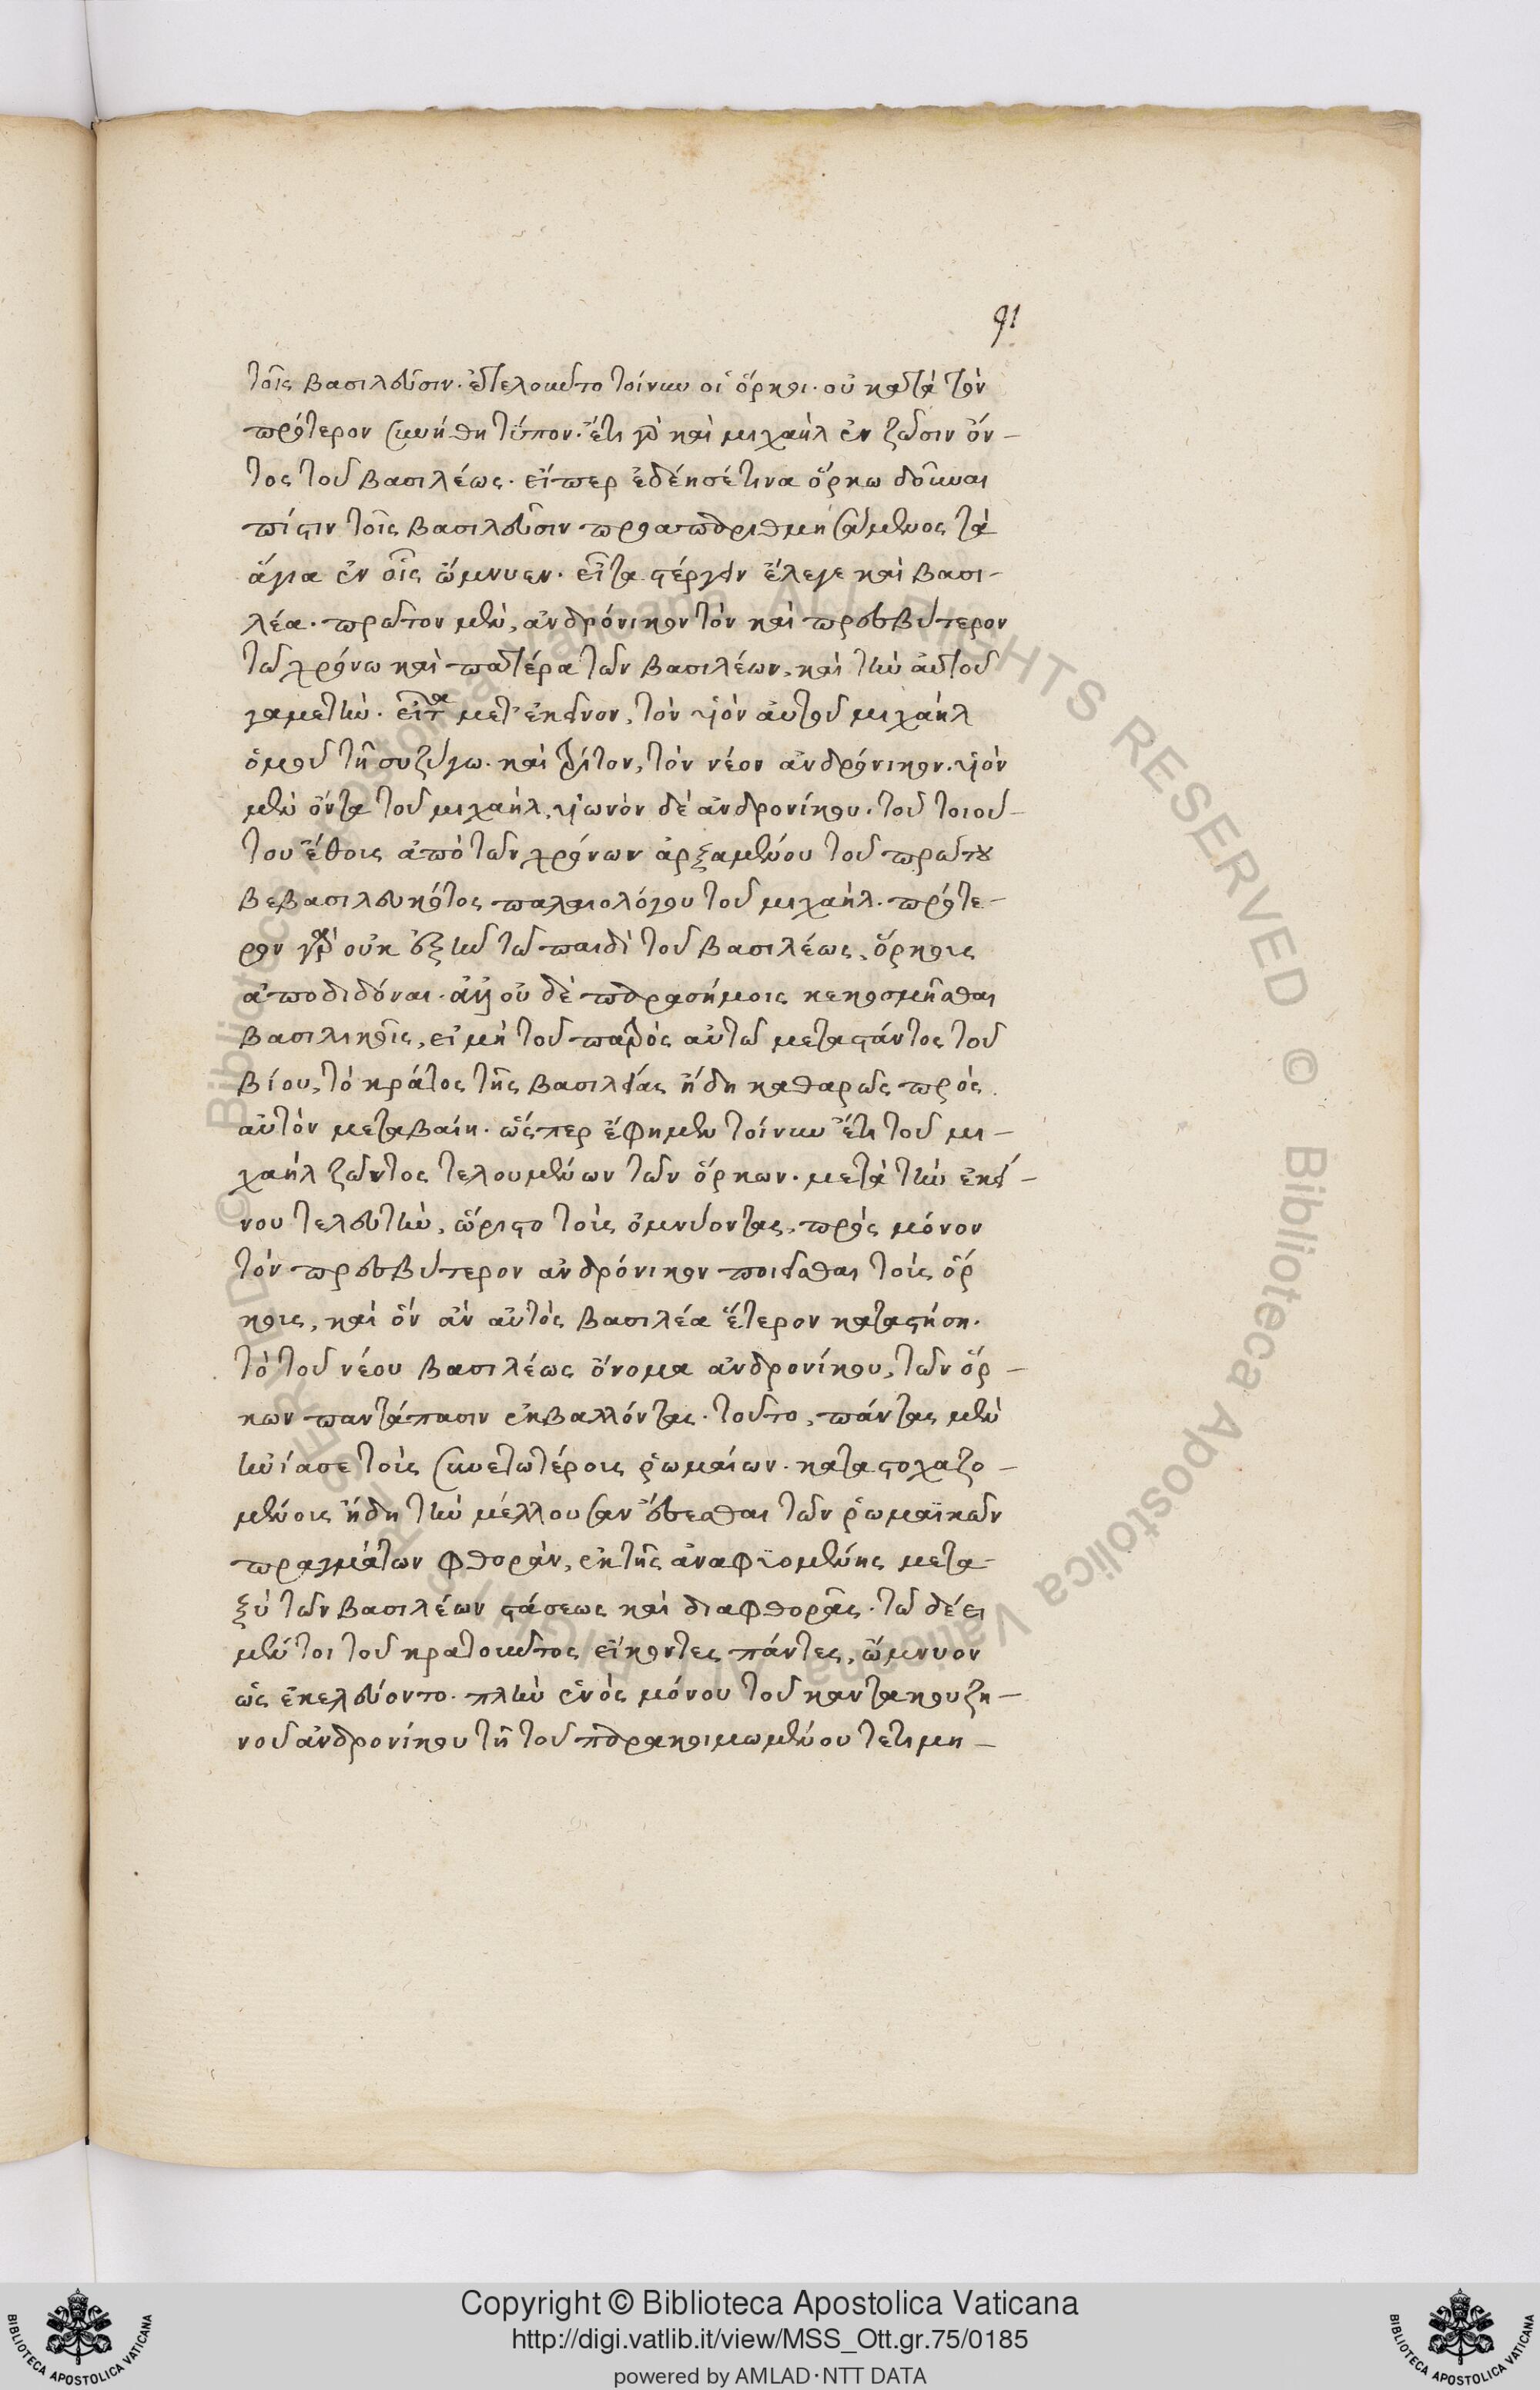 91
τοῖς βασιλεῦσιν. ἐτελοῦντο τοίνυν οἱ ὅρκοι. οὐ κατὰ τὸν
πρότερον συνήθη τύπον. ἔτι γὰρ καὶ μιχαὴλ ἐν ζῶσιν ὄν–
τος τοῦ βασιλέως. εἴπερ ἐδέησέ τινα ὅρκω δοῦναι
πίστιν τοῖς βασιλεῦσιν προαπαριθμησάμενος τὰ
ἅγια ἐν οἷς ὤμνυεν. εἶτα στέργειν ἔλεγε καὶ βασι–
λέα. πρῶτον μὲν, ἀνδρόνικον τὸν καὶ πρεσβύτερον
τῶ χρόνω καὶ πατέρα τῶν βασιλέων, καὶ τὴν αὐτοῦ
γαμετὴν. εἶτα μετ' ἐκεῖνον, τὸν υἱὸν αὐτοῦ μιχαὴλ
ὁμοῦ τῆ συζύγω. καὶ τρίτον, τὸν νέον ἀνδρόνικον. υἱὸν
μὲν ὄντα τοῦ μιχαὴλ, υἱωνὸν δὲ ἀνδρονίκου. τοῦ τοιού–
του ἔθους ἀπὸ τῶν χρόνων ἀρξαμένου τοῦ πρώτου
βεβασιλευκότος παλαιολόγου τοῦ μιχαὴλ. πρότε–
ρον γὰρ οὐκ ἐξῆν τῶ παιδὶ τοῦ βασιλέως, ὅρκους
ἀποδιδόναι. ἀλλ' οὐδὲ παρασήμοις κεκοσμῆσθαι
βασιλικοῖς, εἰ μὴ τοῦ πατρὸς αὐτῶ μεταστάντος τοῦ
βίου, τὸ κράτος τῆς βασιλείας ἤδη καθαρῶς πρὸς
αὐτὸν μεταβαίη. ὥσπερ ἔφημεν τοίνυν ἔτι τοῦ μι–
χαὴλ ζῶντος τελουμένων τῶν ὅρκων. μετὰ τὴν ἐκεί–
νου τελευτὴν, ὥριστο τοὺς ὀμνύοντας, πρὸς μόνον
τὸν πρεσβύτερον ἀνδρόνικον ποιεῖσθαι τοὺς ὅρ
κους, καὶ ὃν ἂν αὐτὸς βασιλέα ἕτερον καταστήση.
τὸ τοῦ νέου βασιλέως ὄνομα ἀνδρονίκου, τῶν ὅρ–
κων παντάπασιν ἐκβαλλόντας. τοῦτο, πάντας μὲν
ἠνίασε τοὺς συνετωτέρους ῥωμαίων. καταστοχαζο–
μένους ἤδη τὴν μέλλουσαν ἔσεσθαι τῶν ῥωμαϊκῶν
πραγμάτων φθορὰν, ἐκ τῆς ἀναφυομένης μετα
ξὺ τῶν βασιλέων στάσεως καὶ διαφθορᾶς. τῶ δέει
μέντοι τοῦ κρατοῦντος εἴκοντες πάντες, ὤμνυον
ὡς ἐκελεύοντο. πλὴν ἑνὸς μόνου τοῦ καντακουζη–
νοῦ ἀνδρονίκου τῆ τοῦ παρακοιμωμένου τετιμη–